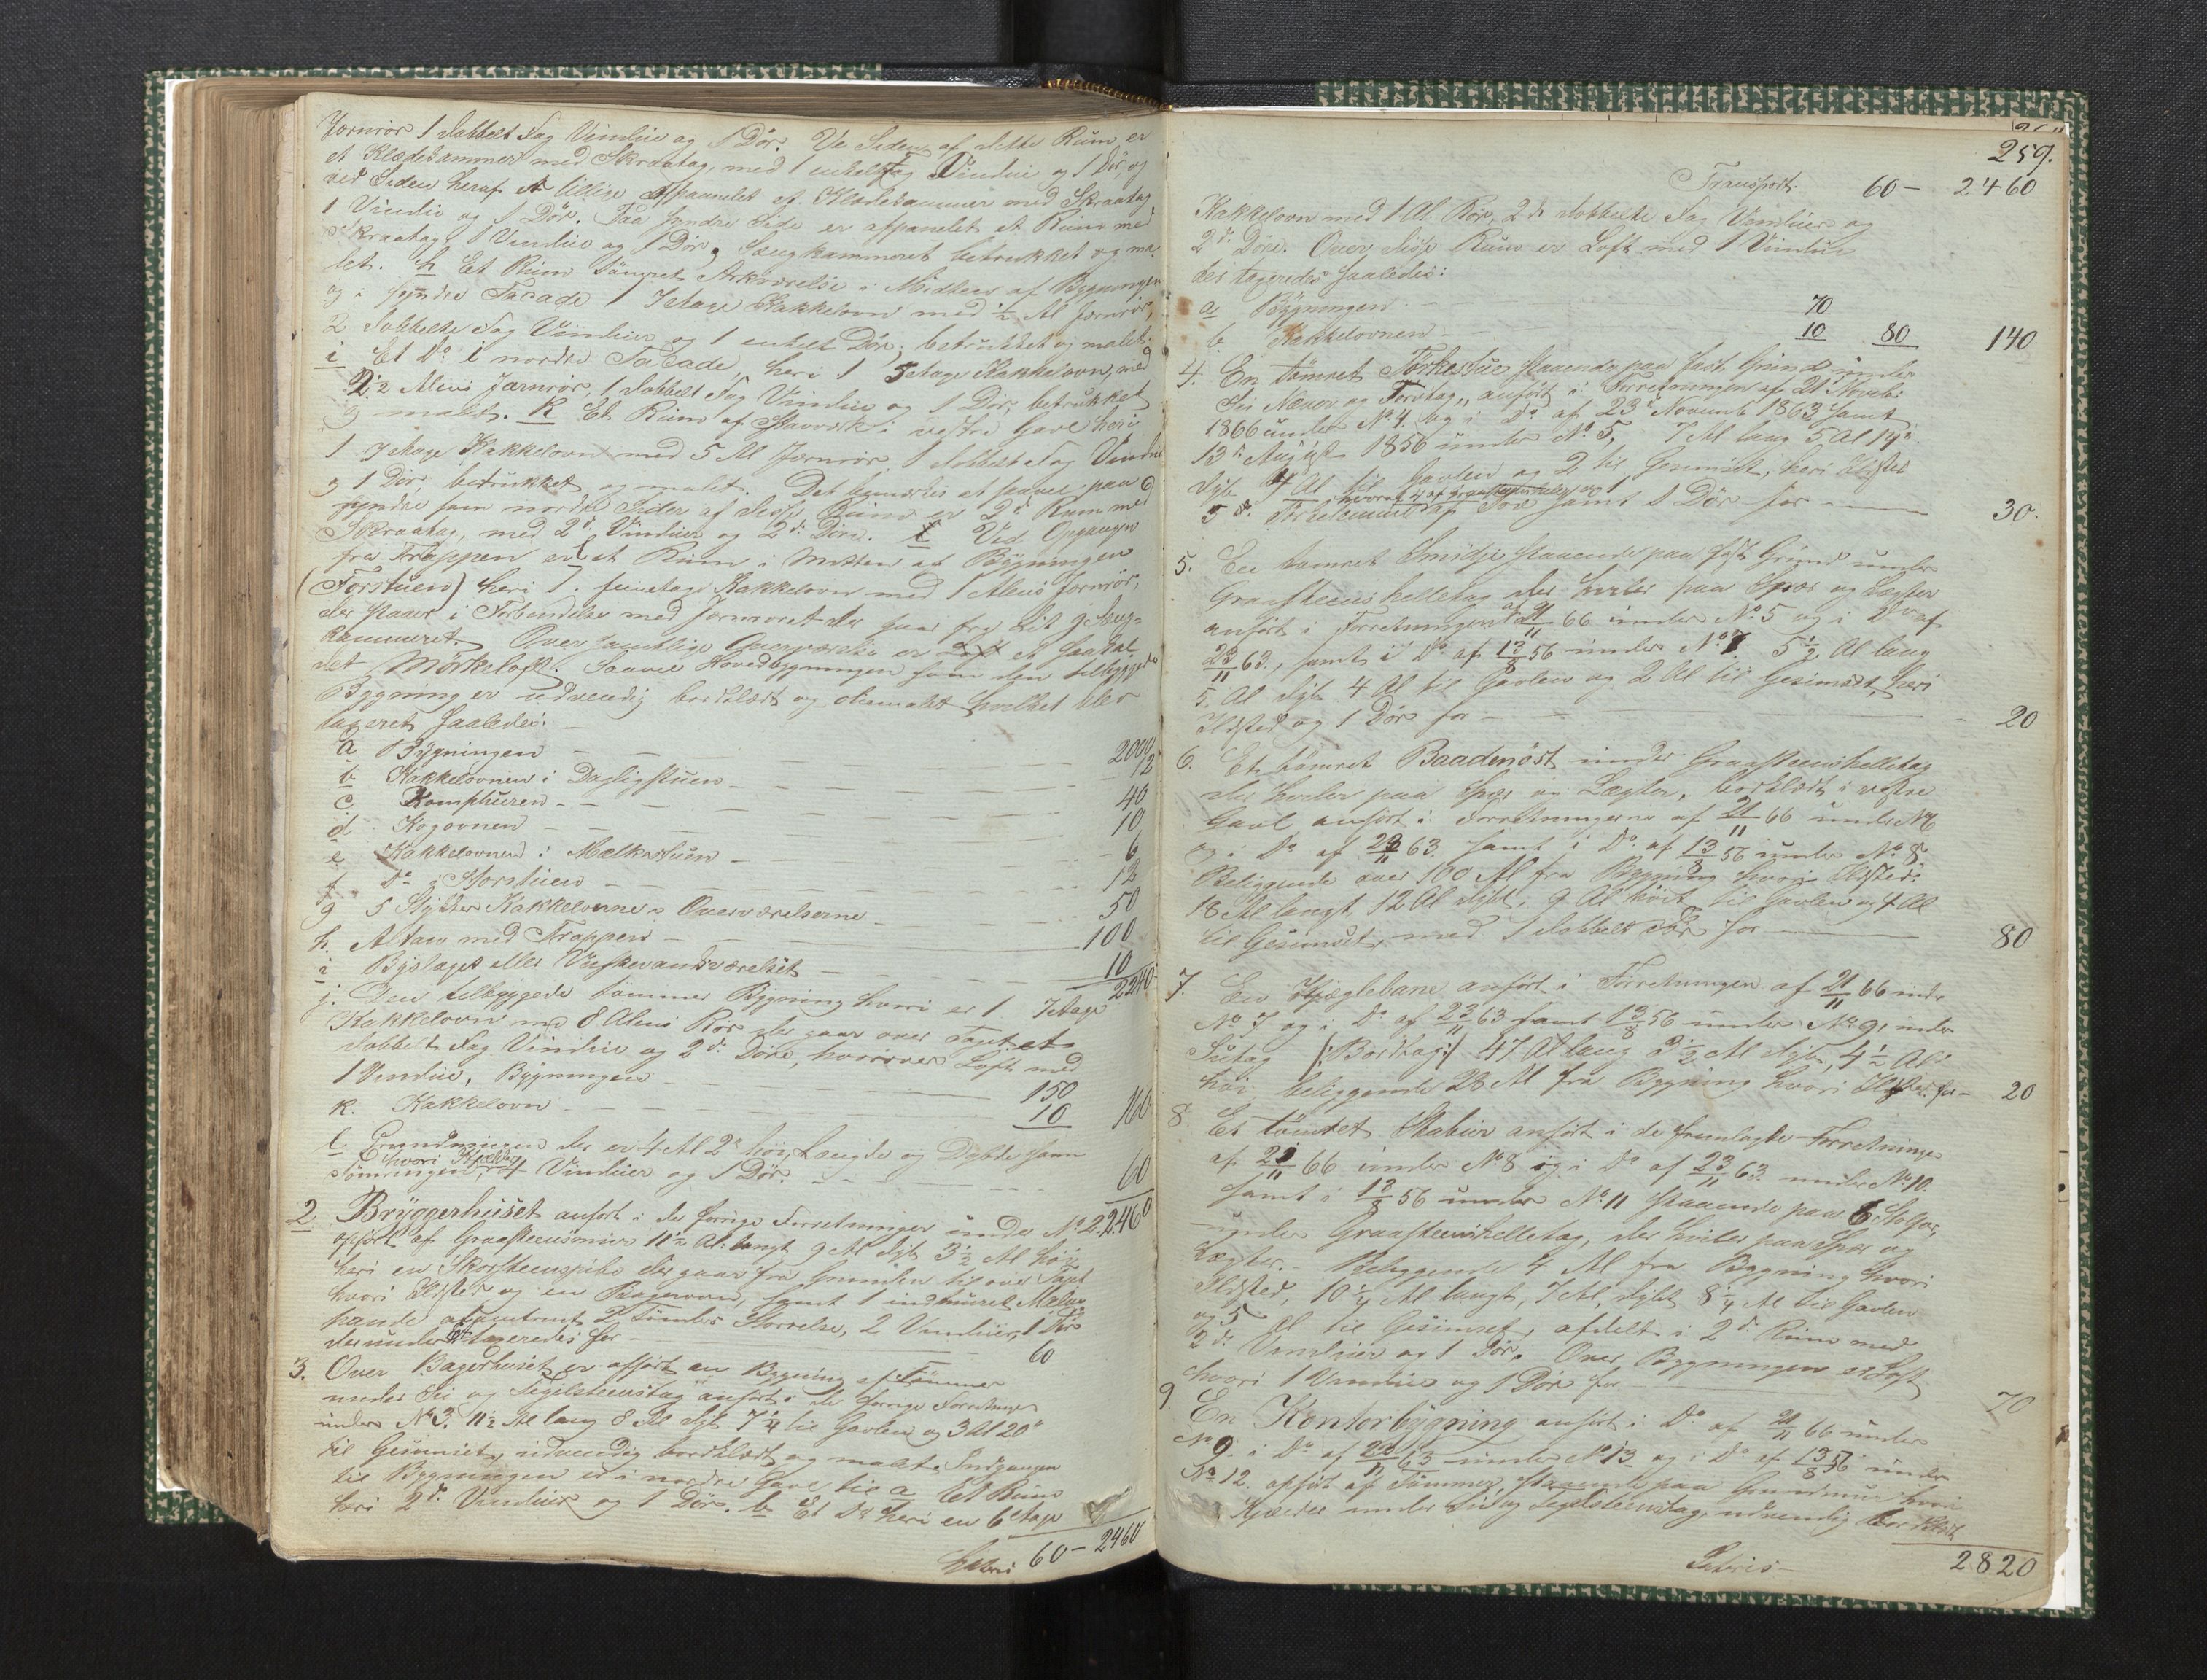 Jærnrør 1 dobbelt Fag Vindue og 1 Dør. Ve Siden af dette Rum er
et Klædekammer med Skraatag, med 1 enkelt Fag Vindue og 1 Dör og
ved Siden heraf er tillige afpanelet et Klædekammer med Skraatag
1 Vindue og 1 Dör. Paa söndre Side er afpanelet et Rum med
Skraatag, 1 Vindue og 1 Dör, Sengkammeret betrukket og ma-
let. h Et Rum tömret Arkværelse i Midten af Bygningen
og i söndre Facade 1 7 etage Kakkelovn med ½ Al Jærnrör,
2 dobbelte Fag Vinduer og 1 enkelt Dör; betrukket og malet.
i Et Do i nordre Facade, heri 1 5 etage Kakkelovn, med
2 Alens Jærnrör, 1 dobbelt Fag Vindue og 1 Dör, betrukket
og malet. K Et Rum af Stavværk i vestre Gavl heri
1 7 etage Kakkelovn med 5 Al Jærnrör, 1 dobbelt Fag Vindue
og 1 Dör, betrukket og malet. Det bemærkes at saavel paa
syndre som nordre Sider af disse Rum er 2de Rum med
Skraatag, med 2de Vinduer og 2de Döre. l Ved Opgangen
fra Trappen er et Rum i Midten af Bygningen
(Forstuen) heri 1. femetages Kakkelovn med 1 Alens Jærnrör,
der staaer i Forbindelse med Jærnröret der gaar fra Lit g Seng-
kammeret Over samtlige Overværelser er et saakal-
det Mörkeloft. Saavel Hovedbygningen som den tilbyggede
Bygning er udvendig bordklædt og oliemalet hvilket blev
taxeret saaledes:
a Bygningen 2000
b Kakkelovnen i Dagligstuen 12
c. Komphuren 40
d Kogovnen 10
e Kakkelovnen i Melkestuen 6
f Do i Storstuen 12
g 5 Stykker Kakkelovne i Overværelserne 50
h. Altan med Trappen 100
i Byslaget eller værelset 10 2240
j. Den tilbyggede tömmer Bygning hvori er 1 7 etage
Kakkelovn med 8 Alens Rör der gaar over Taget et
dobbelt Fag Vindue og 2de Döre, hvorover Loft med
1 Vindue, Bygningen 150
k. Kakkelovn 10 160
l. Grundmuren der er 4 Al 2" höi, Længde og Dybde som
Tömningen, hvori Kjelder 4 Vinduer og 1 Dör. 60
2 Bryggerhuset anfört i de forrige Forretninger under No 2, 2460
opfört af Graasteensmuur 11½ Al: langt 9 Al dyb 3½ Al höi,
heri en Skorsteenspibe der gaar fra Grunden til over Taget
hvori Ildsted og en Bagerovn, samt 1 indmuret Malm-
pande omtrent 2 Tönders Störrelse, 2 Vinduer, 1 Dör
der under Et taxeredes for 60
3. Over Bagerhuset er opfört en Bygning af Tömmer
under Su og Tegelsteenstag anfört i de forrige Forretninger
under No 3. 11½ Al lang 8 Al dyb 7¼ til Gavlen og 3 Al 20"
til Gesimset, udvendig bordklædt og malt. Indgangen
til Bygningen er i nordre Gavl til a Et Rum
heri 2de Vinduer og 1 Dör. b Et Do heri en 6 etage
Lateris 60 – 2460
259.
Transport. 60 – 2460
Kakkelovn med 1 Al. Rör, 2de dobbelte Fag Vinduer og
2de Döre. Over disse Rum er Loft med 1 Vindue
der taxeredes saaledes:
a Bygningen 70
b. Kakkelovnen 10 80 140
4. En tömret Törkestue staaende paa fast Grund under
Su Næver og Torvtag, anfört i Forretningen af 21de Novbr:
1866 under No 4. og i Do af 23de Novemb 1863 samt
13de August 1856 under No 5, 7 Al lang 5 Al 19"
dyb 4 Al til Gavlen og 2 til Gesimset, heri Ildsted
5 hvoraf 4 af graasteensheller og 1 af Træ samt 1 Dör for 30.
5. En tömret Smidje staaende paa fast Grund under
Graasteenshelletag der hviler paa Spær og Lægter
anfört i Forretningen af 21/11 66 under No 5 og i Do af
23/11 63., samt i Do af 13/8 56 under No 7 5½ Al lang
5. Al dyb 4 Al til Gavlen og 2 Al til Gesimset, heri
Ildsted og 1 Dör for 20
6. Et tömret Baadenöst under Graasteenshelletag
der hviler paa Spær og Lægter, bordklædt i vestre
Gavl anfört i Forretningerne af 21/11 66 under No 6
og i Do af 23/11 63. samt i Do af 13/8 56 under No 8.
Beliggende over 100 Al fra Bygning hvori Ildsted.
18 Al langt 12 Al dybt, 9 Al höit til Gavlen og 4 Al
til Gesimset, med 1 dobbelt Dör for 80
7. En Kjeglebane anfört i Forretningen af 21/11 66 under
No 7 og i Do af 23/11 63 samt 13/8 56 under No 9, under
Sutag (: Bordtag :) 47 Al lang 3½ Al dyb, 4½ Al
höi, beliggende 28 Al fra Bygning hvori Ildsted for 20
8. Et tömret Stabur anfört i de fremlagte Forretninger
af 21/11 66 under No 8 og i Do af 23/11 63 under No 10.
samt i 13/8 56 under No 11 staaende paa 6 Stolper,
under Graasteenshelletag, der hviler paa Spær og
Lægter. Beliggende 4 Al fra Bygning hvori
Ildsted, 10¼ Al langt, 7 Al dybt 8¼ Al til Gavlen
og 5 Al til Gesimset, afdelt i 2de Rum med
2de Vinduer og 1 Dör. Over Bygningen er Loft
hvori 1 Vindue og 1 Dör for 70
9 En Kontorbygning anfört i Do af 21/11 66 under
No 9. i Do af 23/11 63 under No 13 og i Do af 13/8 56 under
No 12. opfört af Tömmer, staaende paa Grundmuur hvori
Kjælder under Su og Tegelsteenstag, udvendig bordklædt
Lateris 2820